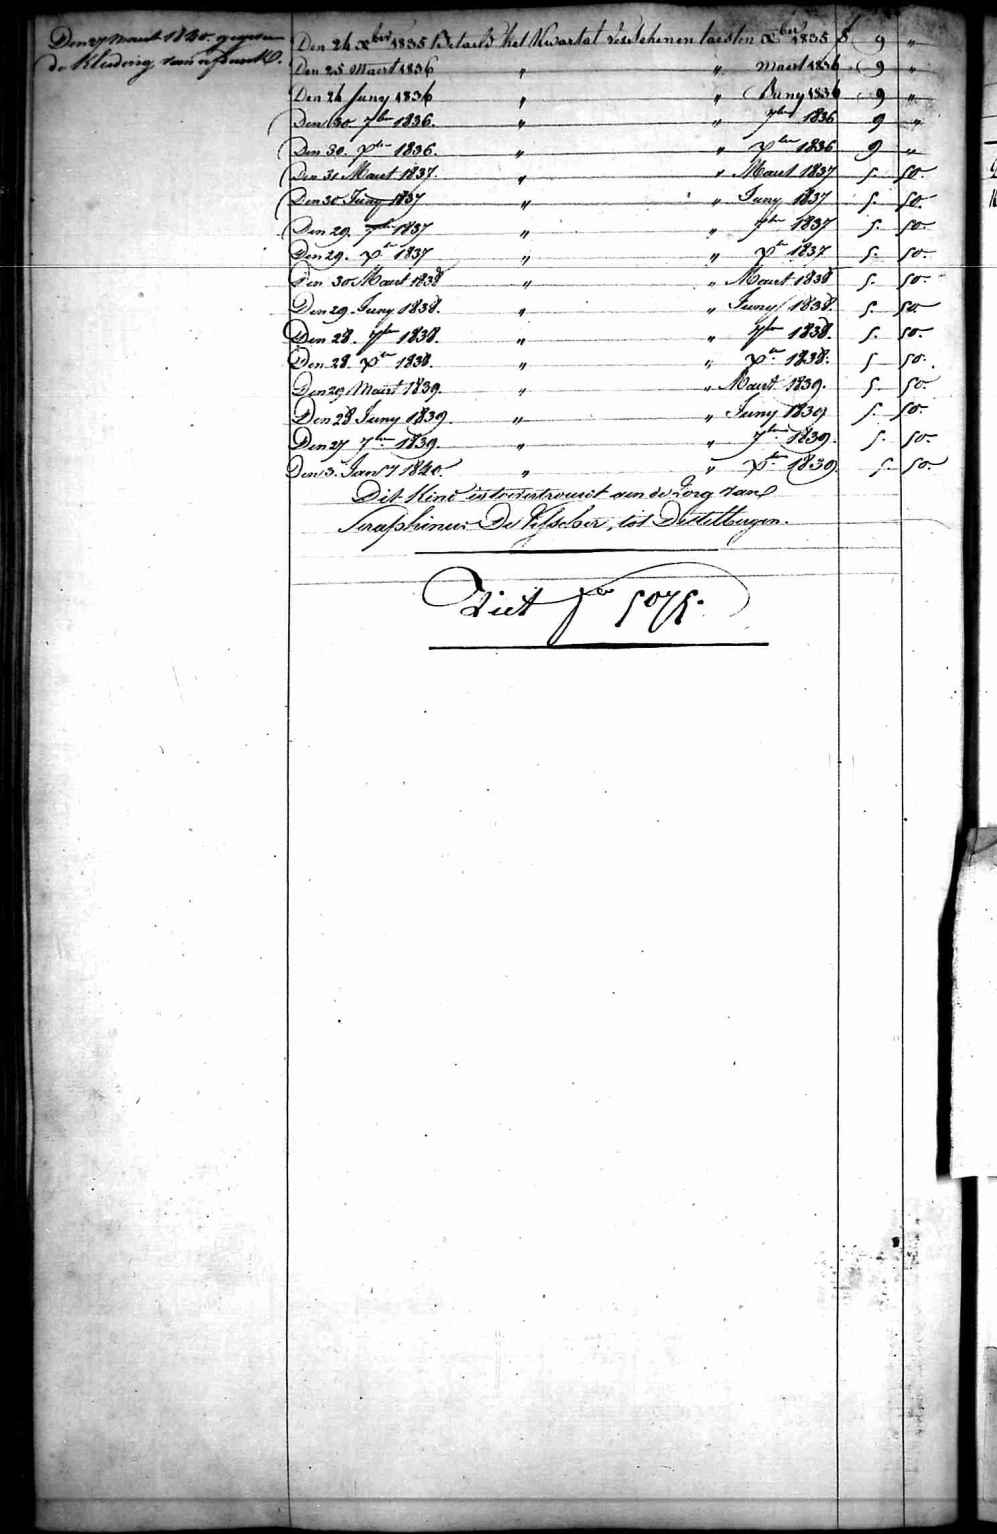 Den 27 Maart 1840 gegeven
de Kleeding van
Den 24 xber 1835 Betaeld het Kwartal verschenen laesten xber 1835 f 9 "
Den 25 Maert 1836 " " Maert 1836 9 "
Den 24 Juny 1836 " " Juny 1836 9 "
Den 30 7ber 1836. " " 7ber 1836 9 "
Den 30. xber 1836. " " xber 1836 9 "
Den 31 Maert 1837. " " Maert 1837 5. 50.
Den 30 Juny 1837 " " Juny 1837 5. 50.
Den 29. 7ber 1837 " " 7ber 1837 5. 50.
Den 29. xr 1837 " " xr 1837 5. 50.
Den 30 Maert 1838 " " Maert 1838 5. 50.
Den 29 Juny 1838. " " Juny 1838. 5. 50.
Den 28. 7ber 1838. " " 7ber 1838. 5. 50.
Den 28. xer 1838. " " xer 1838. 5 50.
Den 29 Maert 1839. " " Maert 1839. 5. 50.
Den 28 Juny 1839. " " Juny 1839 5. 50.
Den 27 7ber 1839. " " 7ber 1839. 5. 50.
Den 3. Jany 1840. " " xber 1839. 5. 50.
Dit Kind is toevertrouwt aen de zorg van
Seraphinus De Visscher, tot Destelbergen.
Ziet No 5075.